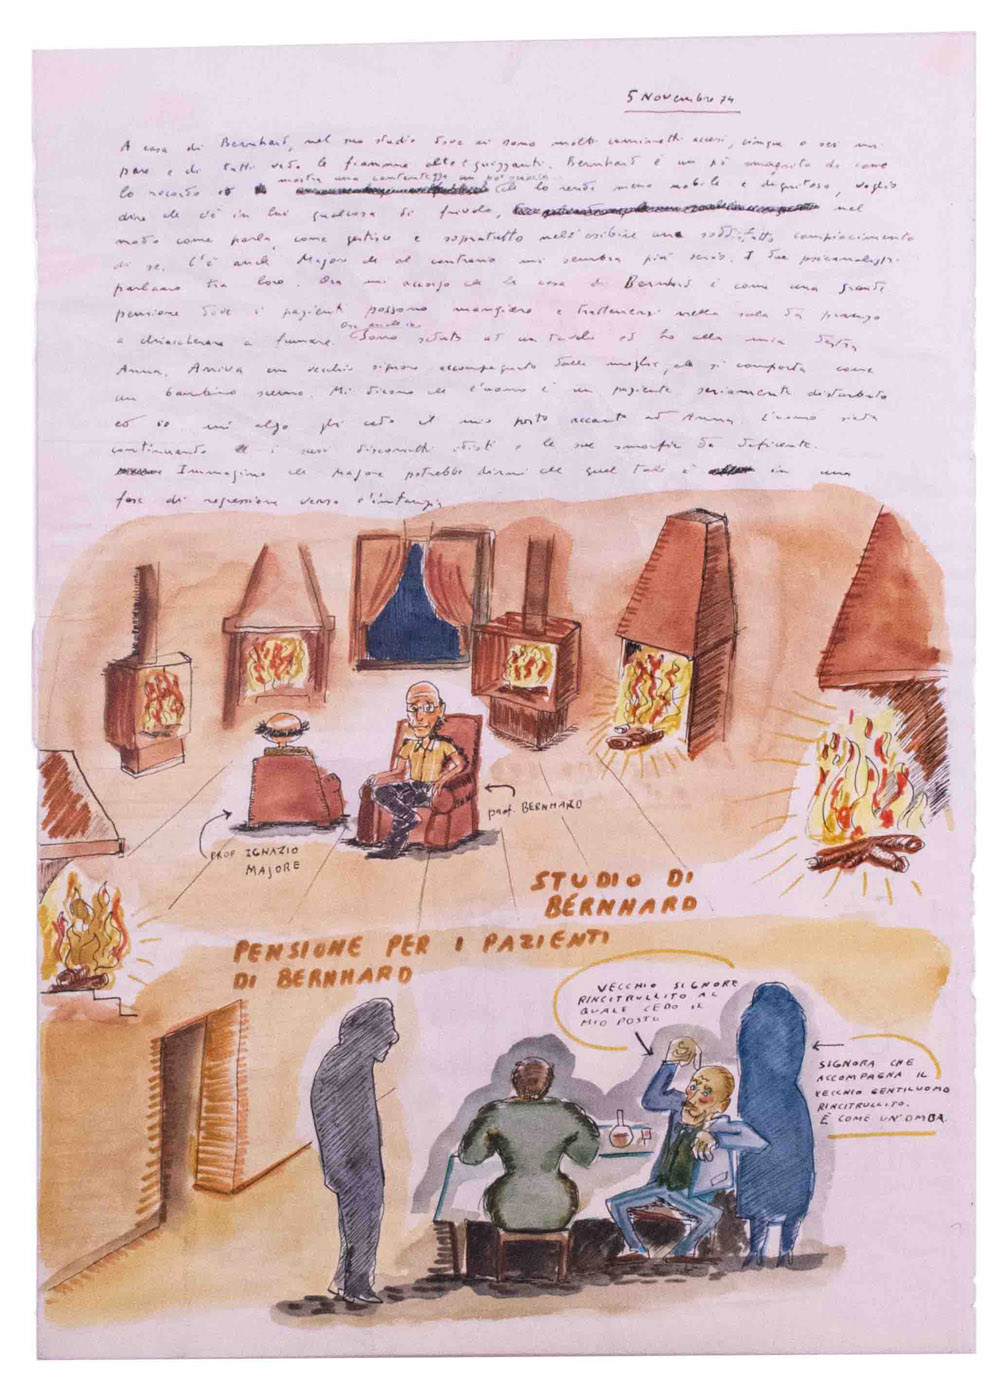 5 Novembre 74
A casa di Bernhard, nel suo studio dove vi sono molti caminetti accesi, cinque o sei mi
pare e di tutti vedo le fiamme alte e guizzanti. Bernhard è un po' smagrito da come
mostra una contentezza un po'
lo ricordo ed che lo rende meno nobile e dignitoso, voglio
dire che c'è in lui qualcosa di frivolo, nel
modo come parla, come gestisce e sopratutto nell'esibire un soddisfatto compiacimento
di sé. C'è anche Majore che al contrario mi sembra più serio. I due psicanalisti
parlano tra loro. Ora mi accorgo che la casa di Bernhard è come una grande
pensione dove i pazienti possono mangiare e trattenersi nella sala da pranzo
Ora anch'io
a chiacchierare a fumare. Sono seduto ad un tavolo ed ho alla mia destra
Anna. Arriva un vecchio signore accompagnato dalla moglie, che si comporta come
un bambino scemo. Mi dicono che l'uomo è un paziente seriamente disturbato
ed io mi alzo gli cedo il mio posto accanto ad Anna. L'uomo siede
continuando i suoi discorsetti idioti e le sue smorfie da deficiente.
Immagino che Majore potrebbe dirmi che quel tale è in una
fase di regressione verso l'infanzia
prof. BERNHARD
PROF IGNAZIO
MAJORE
STUDIO DI
BERNHARD
PENSIONE PER I PAZIENTI
DI BERNHARD
VECCHIO SIGNORE
RINCITRULLITO AL
QUALE CEDO IL
MIO POSTO
SIGNORA CHE
ACCOMPAGNA IL
VECCHIO GENTILUOMO
RINCITRULLITO.
È COME UN'OMBA